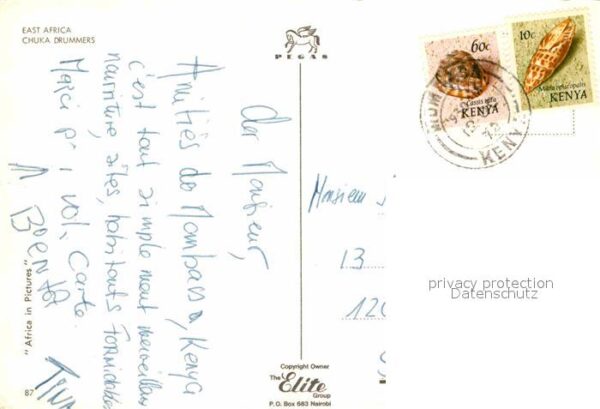 EAST AFRICA
CHUKA DRUMMERS
PEGAS
60c
Cassis rufa
KENYA
10c
Mitra episcopalis
KENYA
KENYA
Monsieur,
Amitiés de Mombassa, Kenya
c'est tout simplement merveilleux
nourriture, sites, habitants
Merci pr votre carte.
TINA
Monsieur
13
120
privacy protection
Datenschutz
"Africa in Pictures"
87
Copyright Owner
The Elite Group
P.O. Box 683 Nairobi